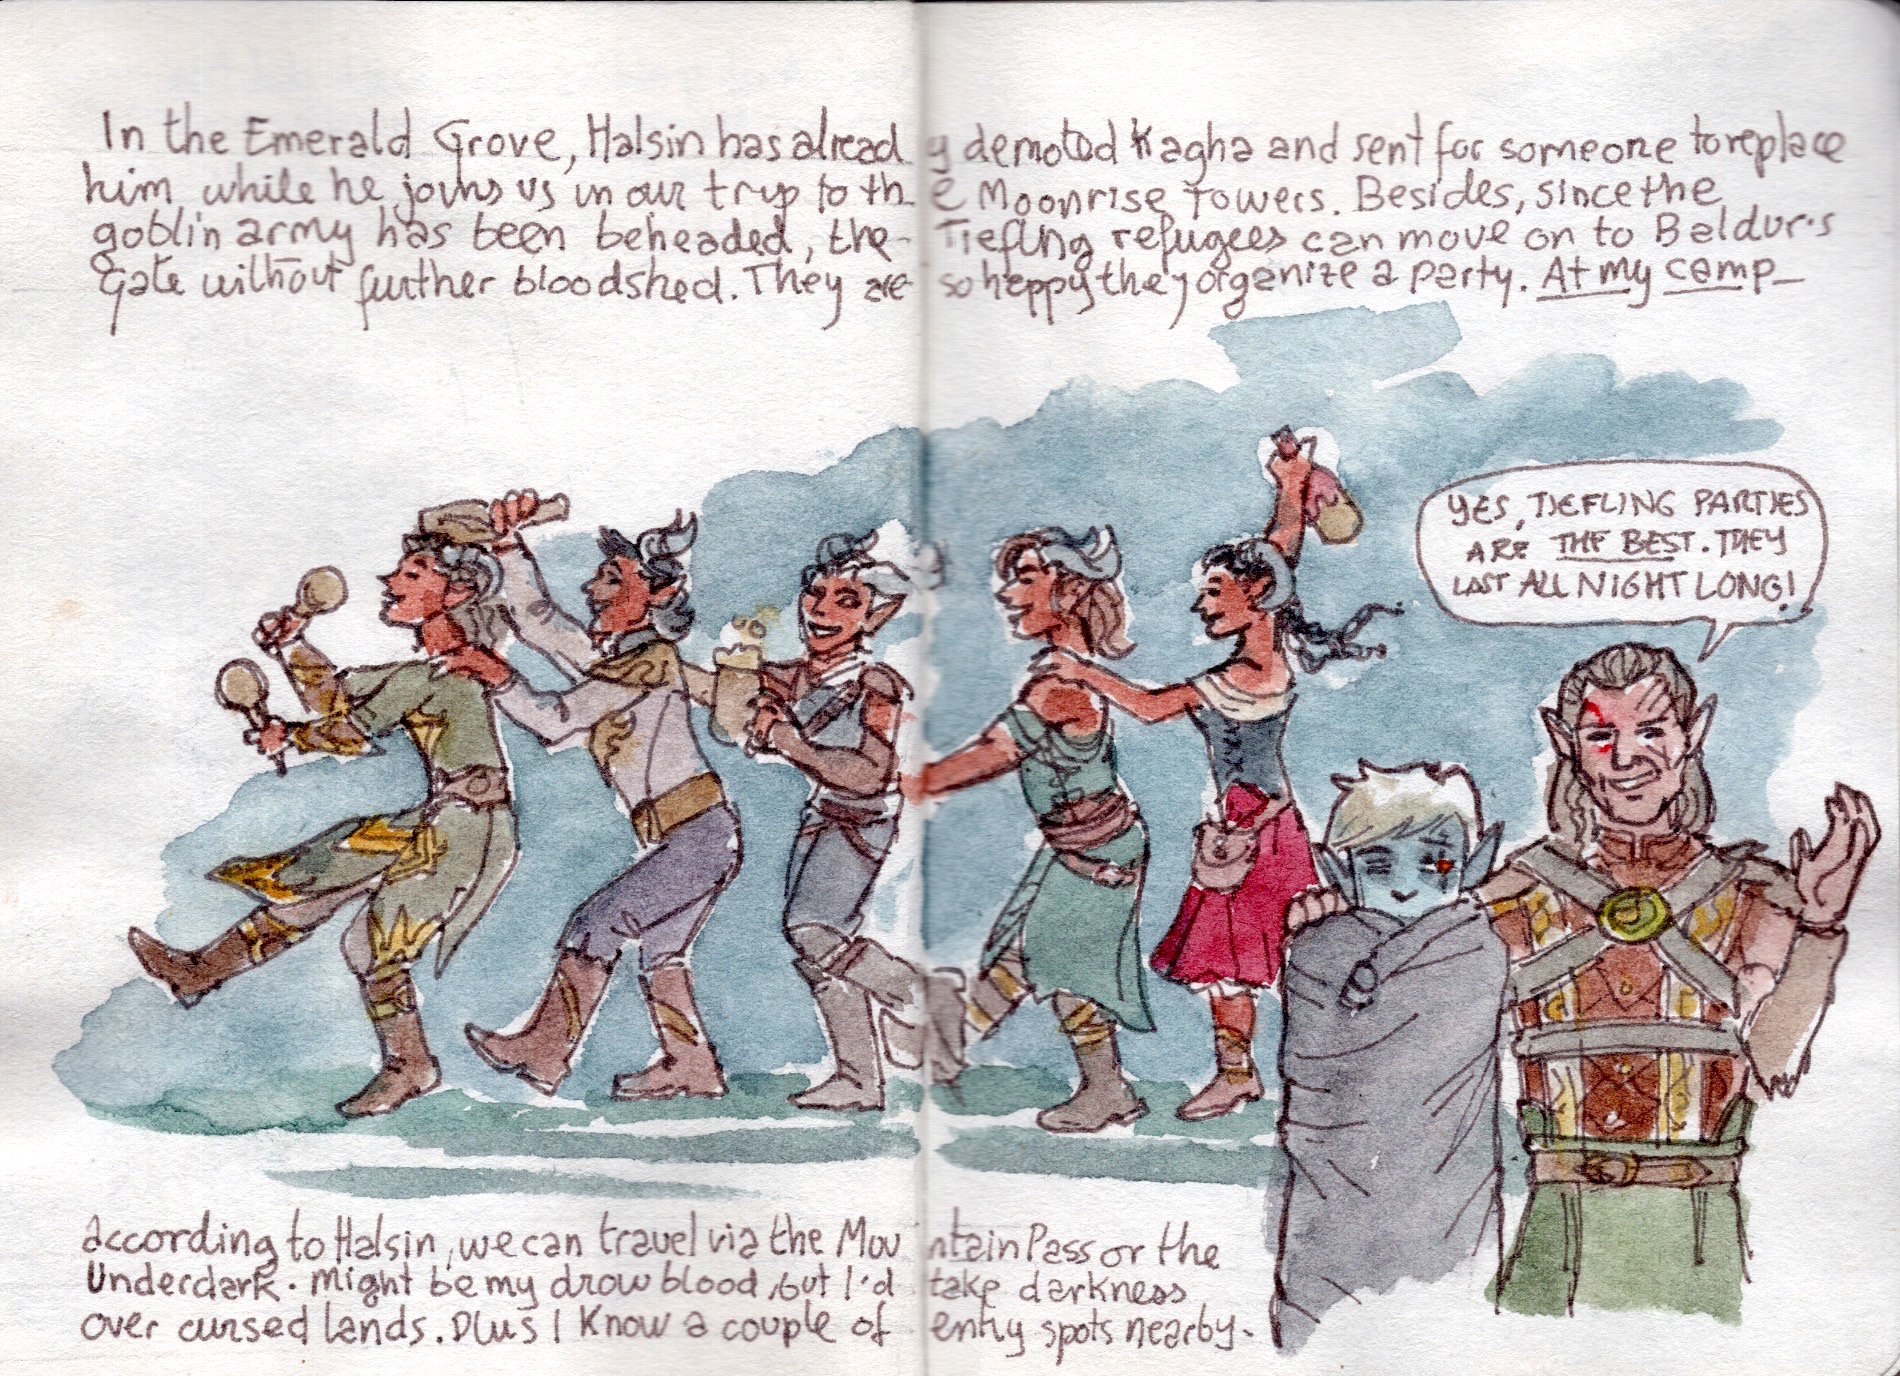 In the Emerald Grove, Halsin has already demoted Kagha and sent for someone to replace
him while he joins us in our trip to the Moonrise Towers. Besides, since the
goblin army has been beheaded, the Tiefling refugees can move on to Baldur's
Gate without further bloodshed. They are so happy they organize a party. At my camp
YES, TIEFLING PARTIES
ARE THE BEST. THEY
LAST ALL NIGHT LONG!
according to Halsin, we can travel via the Mountain Pass or the
Underdark. Might be my drow blood, but I'd take darkness
over cursed lands. Plus I know a couple of entry spots nearby.